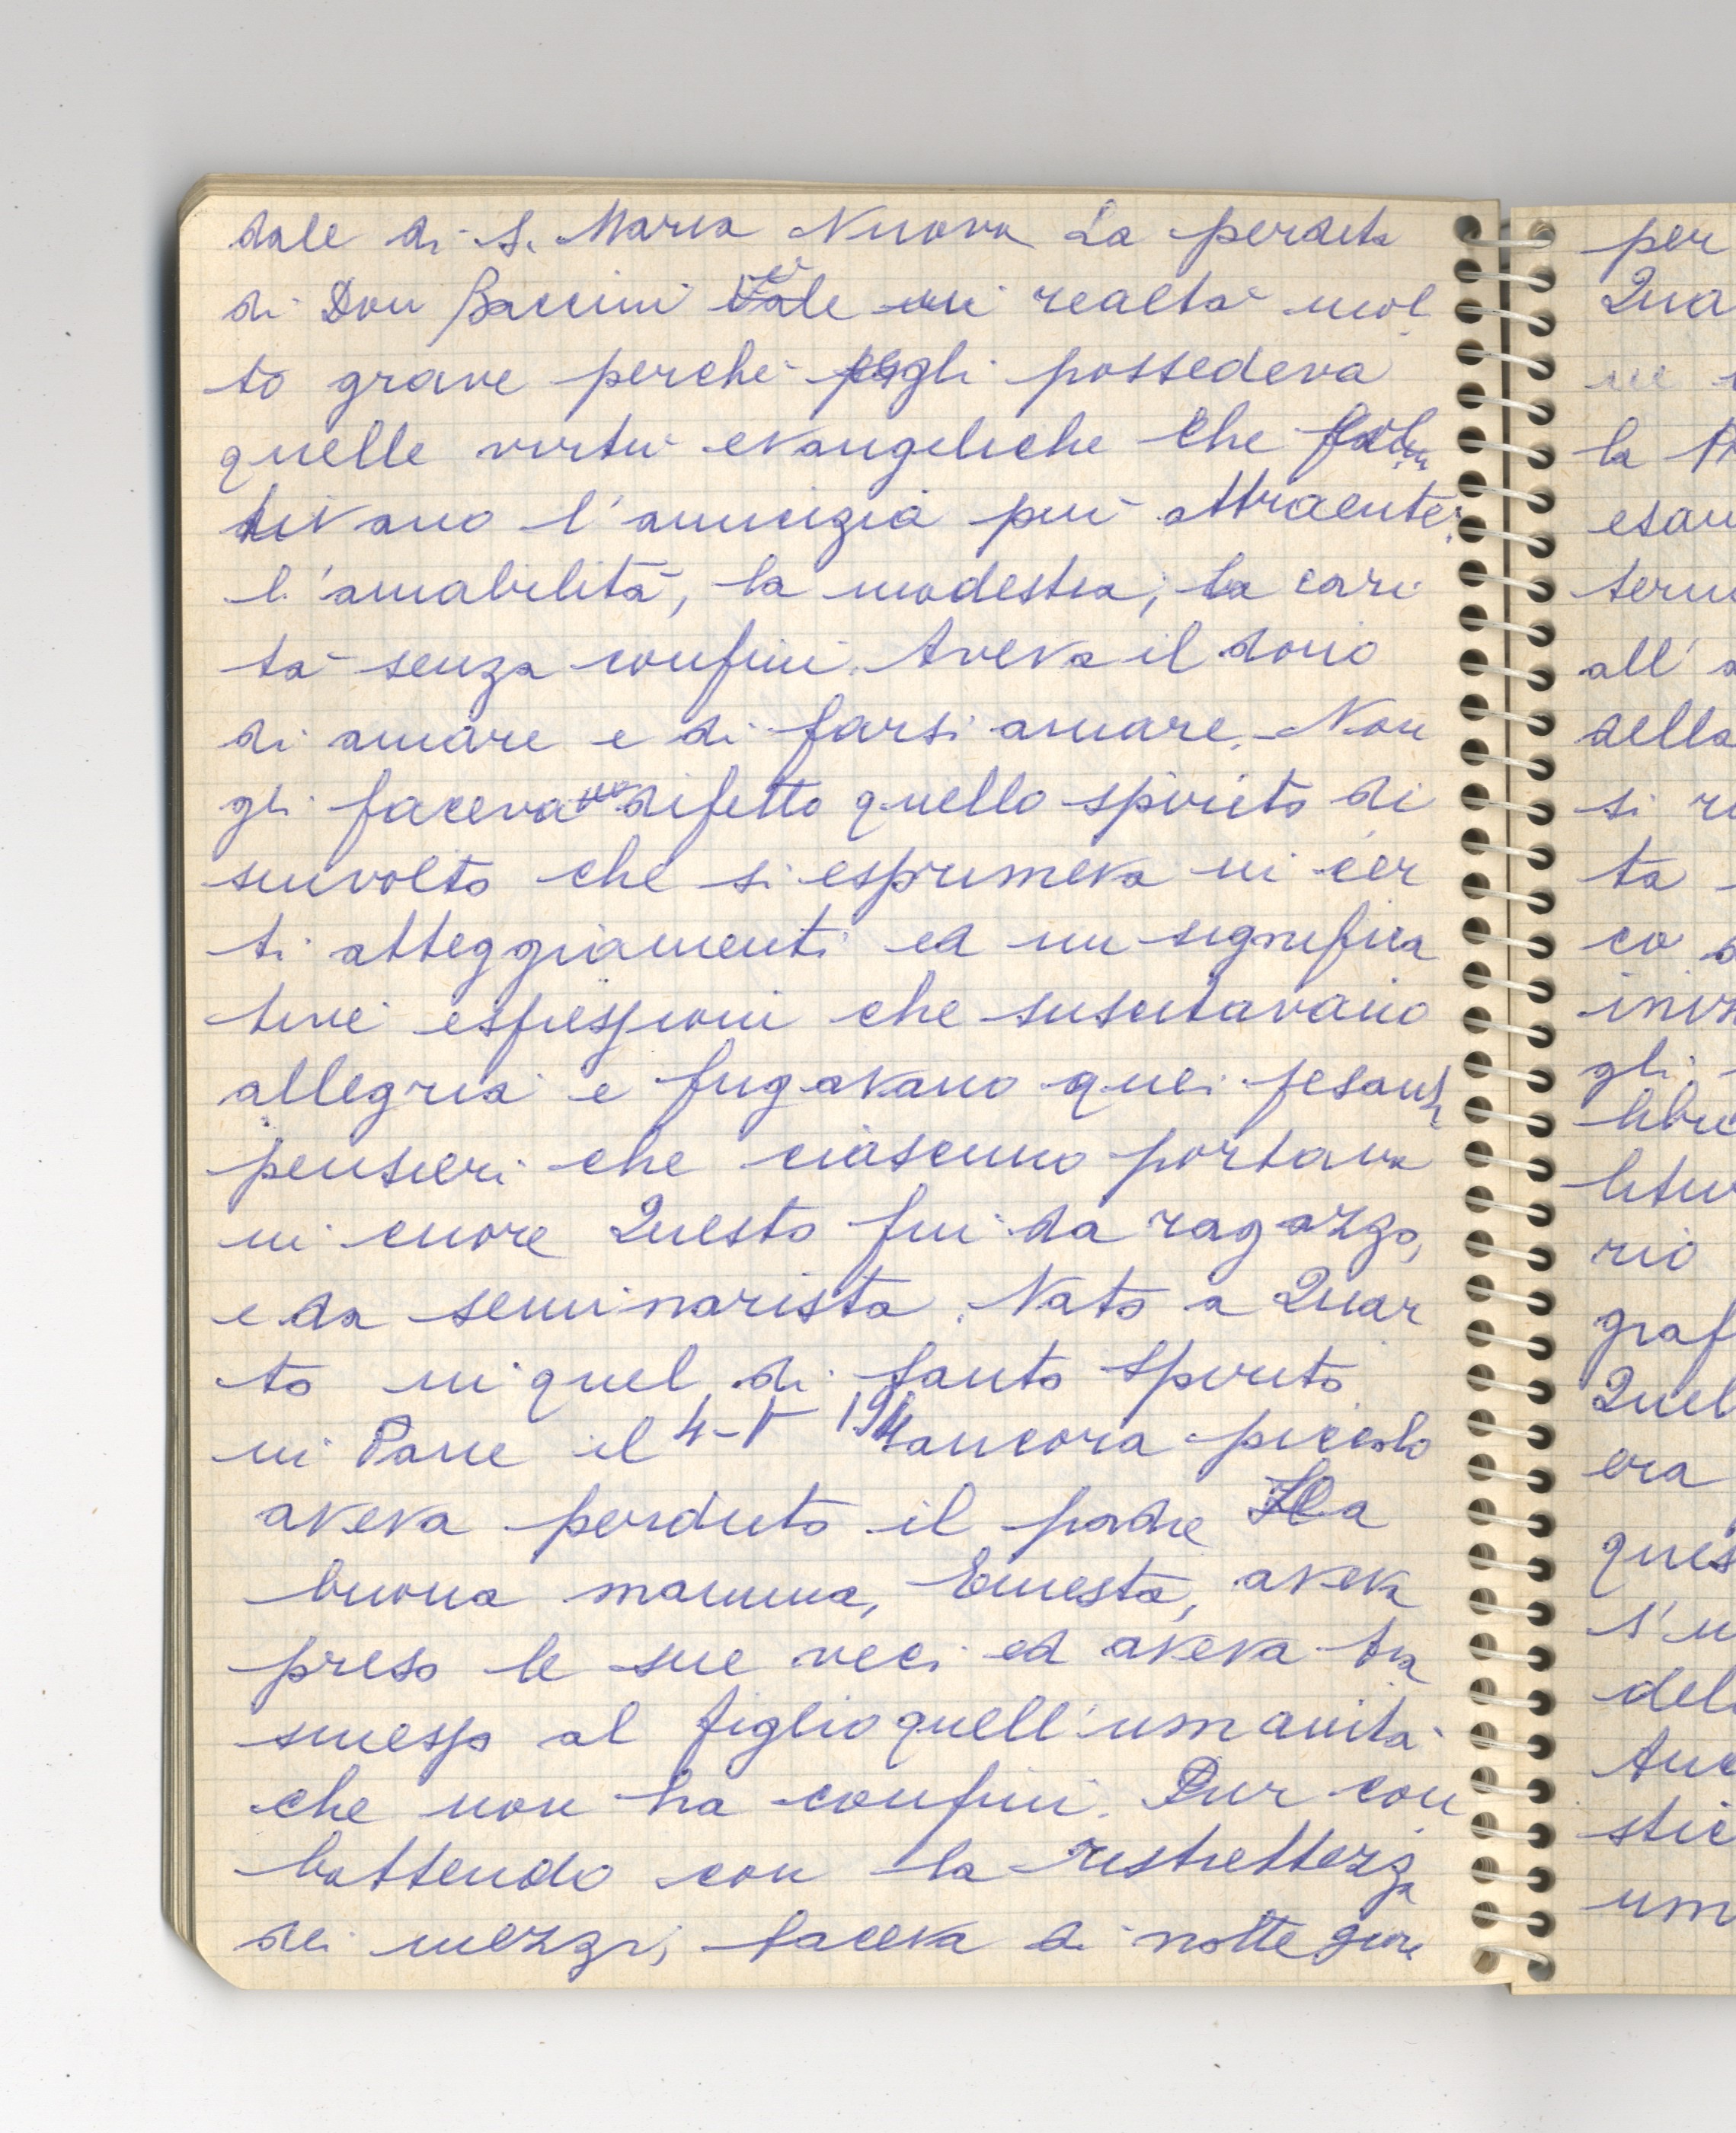 dale di S. Maria Nuova La perdita
di Don Baccini è in realtà mol
to grave perché egli possedeva
quelle virtù evangeliche che
l'amicizia più attraente:
l'amabilità, la modestia, la cari
tà senza confini. Aveva il dono
di amare e di farsi amare. Non
gli faceva difetto quello spirito di
sinvolto che si esprimeva in cer
ti atteggiamenti ed in significa
tive espressioni che suscitavano
allegria e fugavano quei pesanti
pensieri che ciascuno portava
in cuore Questo fin da ragazzo,
e da seminarista. Nato a Quar
to in quel di Santo Spirito
in Pane il 4-V 194 ancora piccolo
aveva perduto il padre La
buona mamma, Ernesta, aveva
preso le sue veci ed aveva tra
smesso al figlio quell'umanità
che non ha confini. Pur com
battendo con la ristrettezza
dei mezzi, faceva di notte giorno
per
Qua
ne
la
esam
term
all'
della
si
ta
co
iniz
gli
libri
litur
rio
graf
Quel
era
ques
s'u
del
Anc
stic
um